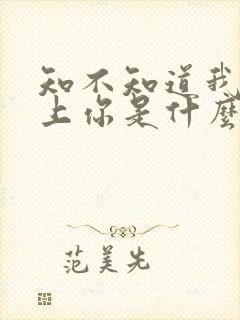 知不知道我
上你是什麼
范美先